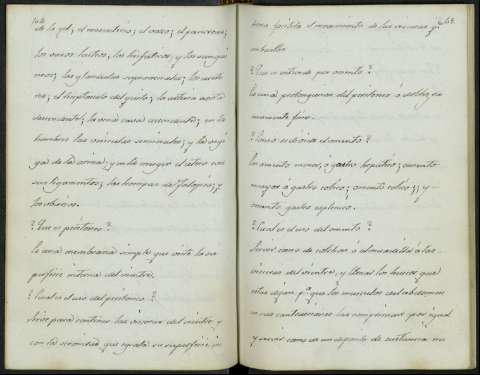 de la yel; el mesenterio; el vazo; el pancreas;
los vasos lacteos, los linfaticos; y los sangui
neos; las glandulas suprarrenales; los uréte
res; el receptaculo del quilo; la arteria aorta
descendente; la vena cava ascendente; en los
hombres las vesiculas seminales; y la veji
ga de la orina; y en la muger el utero con
sus ligamentos; las trompas de Falopio; y
los obarios.
? Que es peritoneo?
Es una membrana simple que viste la su
perficie interna del vientre.
? Cual es el uso del peritoneo?
Sirve para contener las visceras del vientre, y
con la serosidad que exala su superficie in
163.
terna facilita el movimiento de las visceras y
? Que se entiende por omento?
Es una prolongacion del peritoneo ó doblez, su
mamente fino.
? Como se divide el omento?
En omento menor, ó gastro hepático; omento
mayor ó gastro colico; omento colico; y o
mento gastro esplenico.
? Cual es el uso del omento?
Servir como de colchon ó almoadilla á las
visceras del vientre, y llenar los huecos que
estas dejan, pª que los musculos del abdomen
en sus contracciones las compriman por igual
y servir como de un deposito de sustancia nu